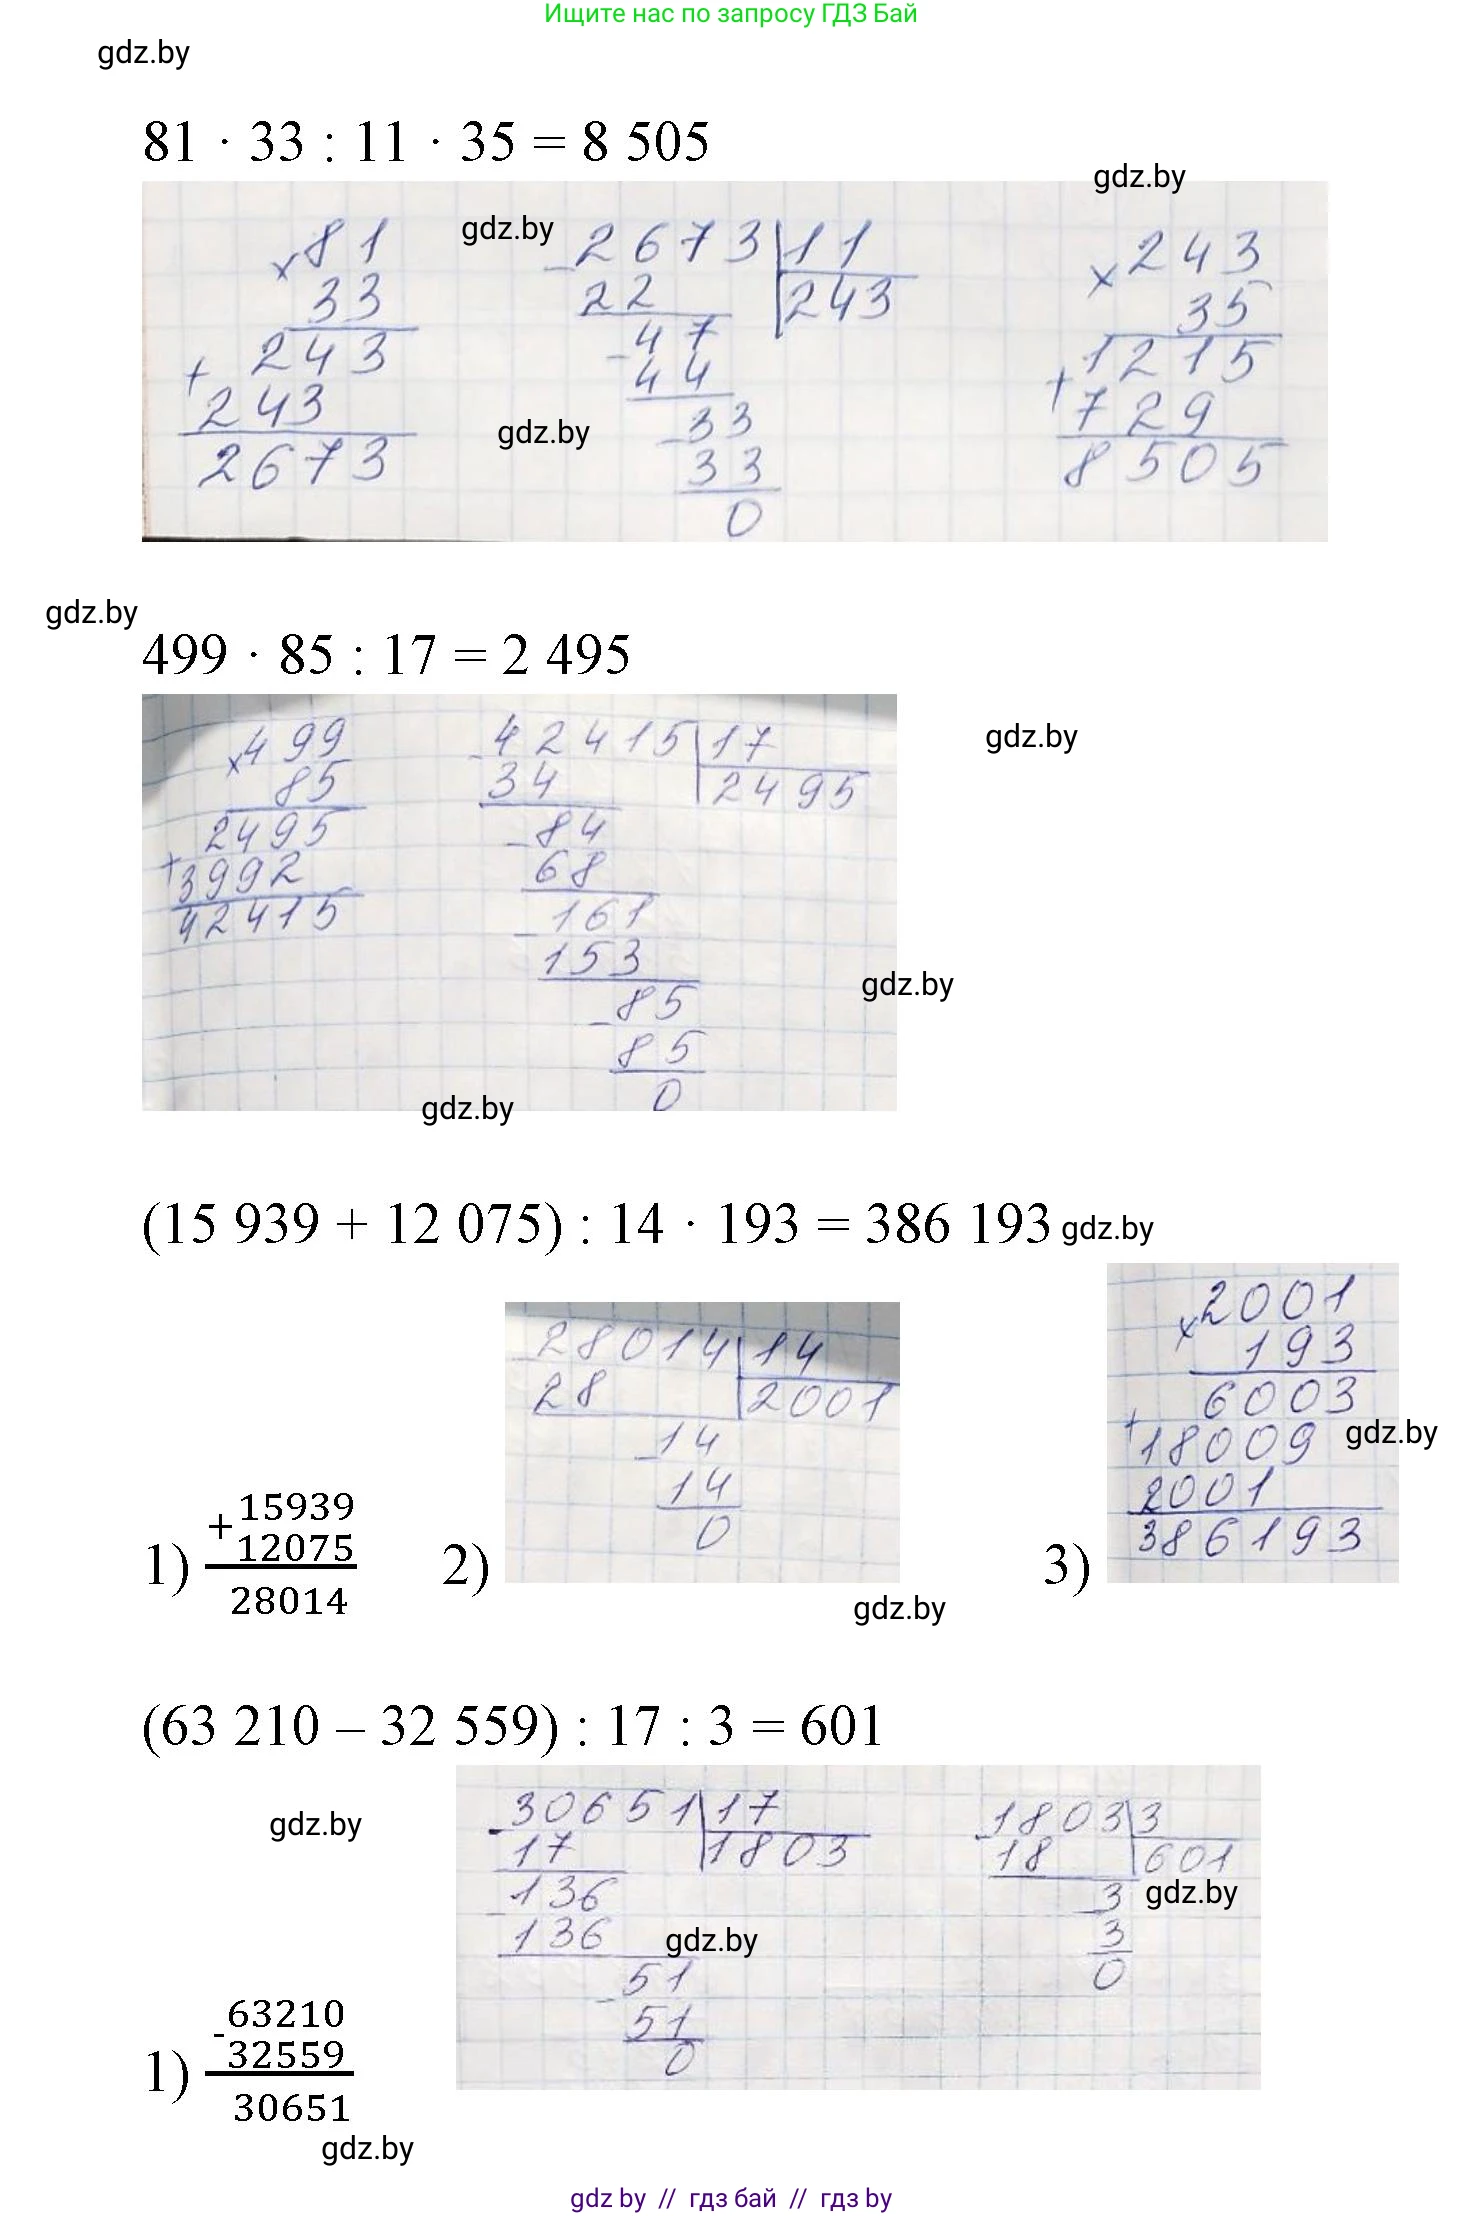 Ищите нас по запросу ГДЗ Бай
gdz.by
81 · 33 : 11 · 35 = 8 505
gdz.by
gdz.by
× 81
33
243
+ 243
2673
- 2673 | 11
22 | 243
- 47
44
- 33
33
0
gdz.by
× 243
35
1215
+ 729
8505
gdz.by
499 · 85 : 17 = 2 495
× 499
85
2495
+ 3992
42415
- 42415 | 17
34 | 2495
- 84
68
- 161
153
- 85
85
0
gdz.by
gdz.by
gdz.by
(15 939 + 12 075) : 14 · 193 = 386 193
gdz.by
1)
+ 15939
12075
28014
2)
- 28014 | 14
28 | 2001
- 14
14
0
3)
× 2001
193
6003
+ 18009
2001
386193
gdz.by
gdz.by
(63 210 – 32 559) : 17 : 3 = 601
gdz.by
1)
- 63210
32559
30651
- 30651 | 17
17 | 1803
- 136
136
- 51
51
0
gdz.by
- 1803 | 3
18 | 601
- 3
3
0
gdz.by
gdz.by
gdz by // гдз бай // гдз by